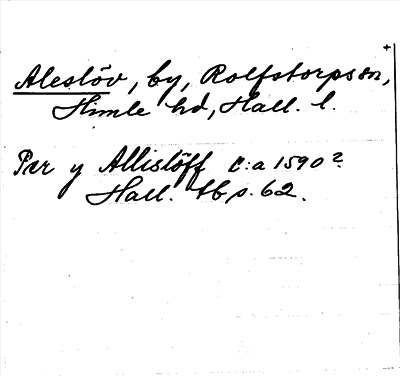 Aleslöv, by, Rolfstorps sn,
Himle hd, Hall. l.
Per y Allislöff c:a 1590?
Hall. tb s. 62.